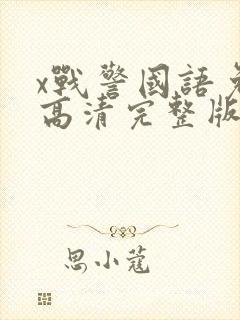 x戰警國語免
高清完整版
思小蔻